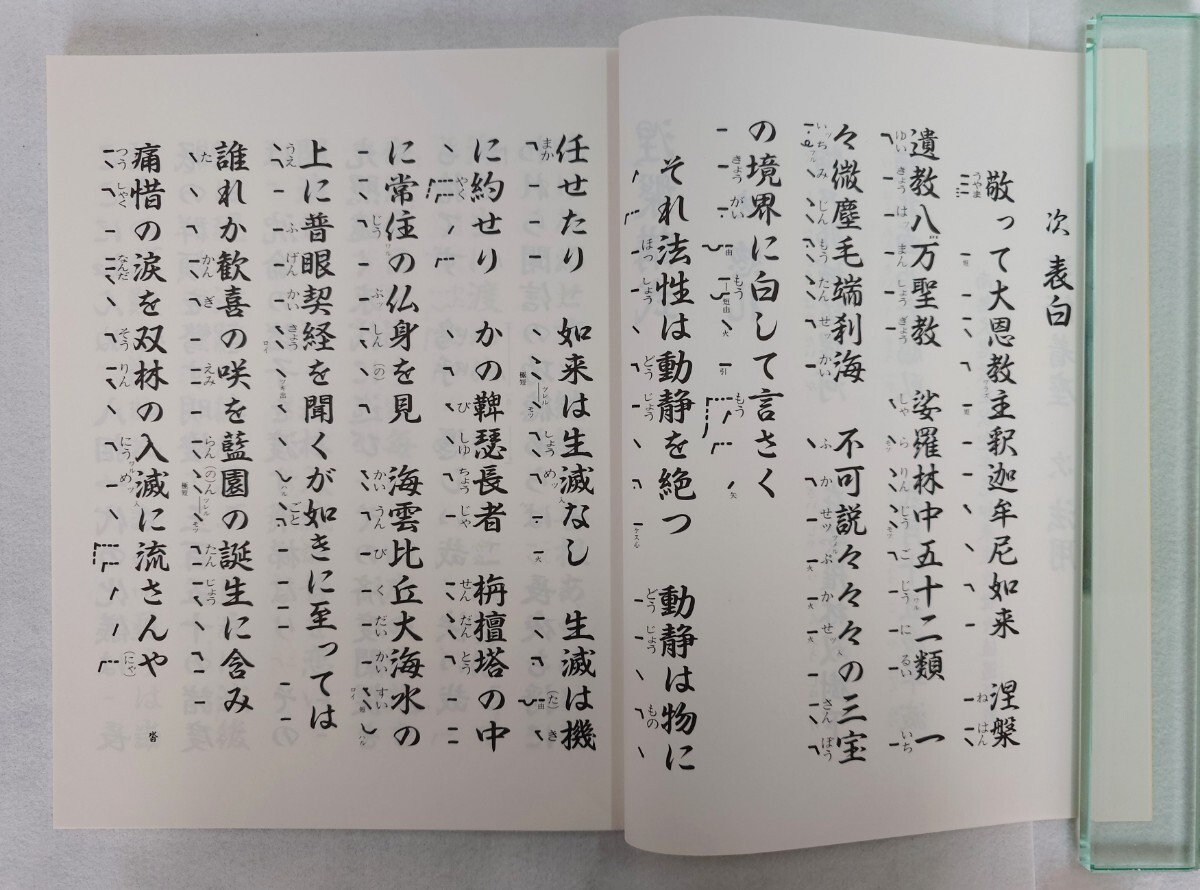 次 表白
敬って大恩教主釈迦牟尼如来 涅槃
遺教八万聖教 娑羅林中五十二類 一
々微塵毛端刹海 不可説々々々の三宝
の境界に白して言さく
それ法性は動静を絶つ 動静は物に
任せたり 如来は生滅なし 生滅は機
に約せり かの鞞瑟長者 栴檀塔の中
に常住の仏身を見 海雲比丘大海水の
上に普眼契経を聞くが如きに至っては
誰れか歓喜の咲を藍園の誕生に含み
痛惜の涙を双林の入滅に流さんや